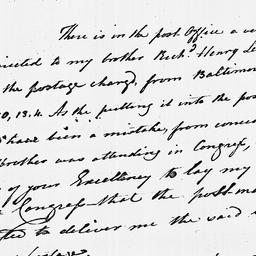 There is in the post Office a
irected to my brother Rich.d Henry Le
the postage charg.d from Baltimor
0,13.4. As the putting it into the pos
have been a mistake, from
brother was attending in Congress,
of your Excellency to lay my
Congress that the post-ma
ted to deliver me the said